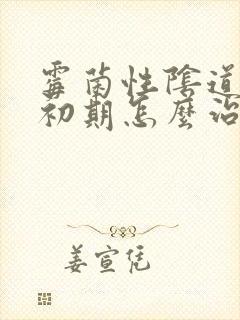 霉菌性陰道
初期怎麼治
姜宣凭